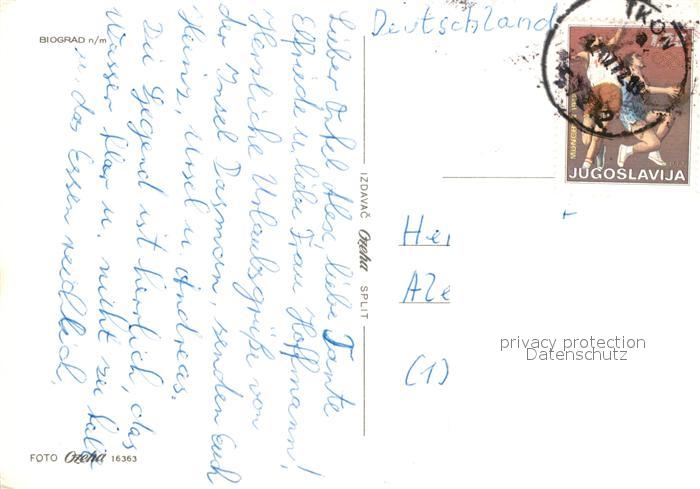 BIOGRAD n/m
Lieber Onkel Alex liebe Tante
Elfriede u. liebe Frau Hoffmann!
Herzliche Urlaubsgrüße von
der Insel Dasman, senden Euch
Heinz, Ursel u. Andreas.
Die Gegend ist herrlich, das
Wasser klar u. nicht zu kalt
u. das Essen reichlich.
FOTO Ozeha 16363
IZDAVAČ Ozeha SPLIT
Deutschland
TKON
JUGOSLAVIJA
He
Ale
(1)
privacy protection
Datenschutz